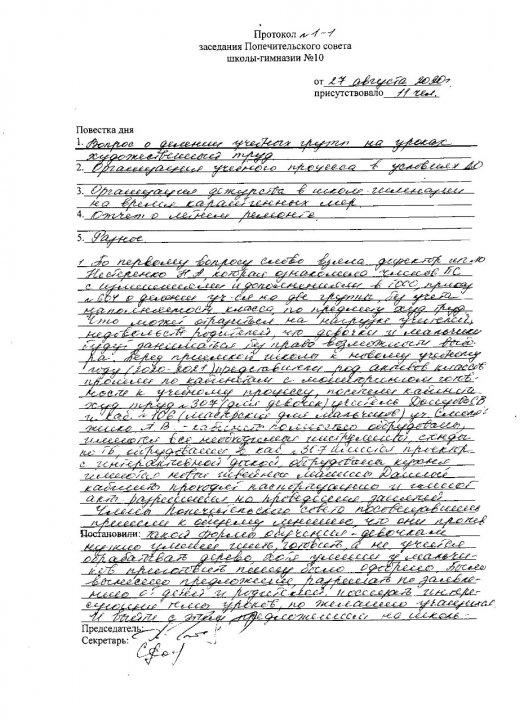 Протокол №1-1
заседания Попечительского совета
школы-гимназии №10
от 27 августа 2020г.
присутствовало 11 чел.
Повестка дня
1. Вопрос о делении учебных групп на уроках
художественный труд
2. Организация учебного процесса в условиях ДО
3. Организация дежурства в школе-гимназии
на время карантинных мер
4. Отчет о летнем ремонте
5. Разное.
1. По первому вопросу слово взяла директор
Нестеренко Н.А. которая ознакомила членов ПС
с изменениями и дополнениями в ГОСО, приказ
№604 о делении уч-ся на две группы без учета
наполняемости класса по предмету худ. труд
что может отразиться на нагрузке учителей,
недовольств родителей, что девочки и мальчики
будут заниматься без права возможности выбо-
ра. Перед приемкой школы к новому учебному
году (2020-2021) представители род. активов классов
прошли по кабинетам с мониторингом готов-
ности к учебному процессу, посетили кабинеты
худ. труда №307 (для девочек) учитель
и каб. №108 (мастерская для мальчиков) уч.
А.В. - кабинеты полностью оборудованы,
имеются все необходимые инструменты, стенды
по ТБ, оборудование. В каб. №307 имеется проектор
с интерактивной доской оборудована кухня
имеются новые швейные машины. Данный
кабинет прошел паспортизацию и имеет
акт разрешения на проведение занятий.
Члены Попечительского совета посовещавшись
пришли к общему мнению, что они против
Постановили: такой формы обучения - девочкам
нужно умение шить, готовить а не учиться
обрабатывать дерево, хотя умение у мальчи-
ков приготовить пищу было одобрено. Было
вынесено предложение, разрешать по заявле-
нию детей и родителей, посещать интере-
сующие темы уроков, по желанию учащихся
И выйти с этим предложением на
Председатель:
Секретарь: